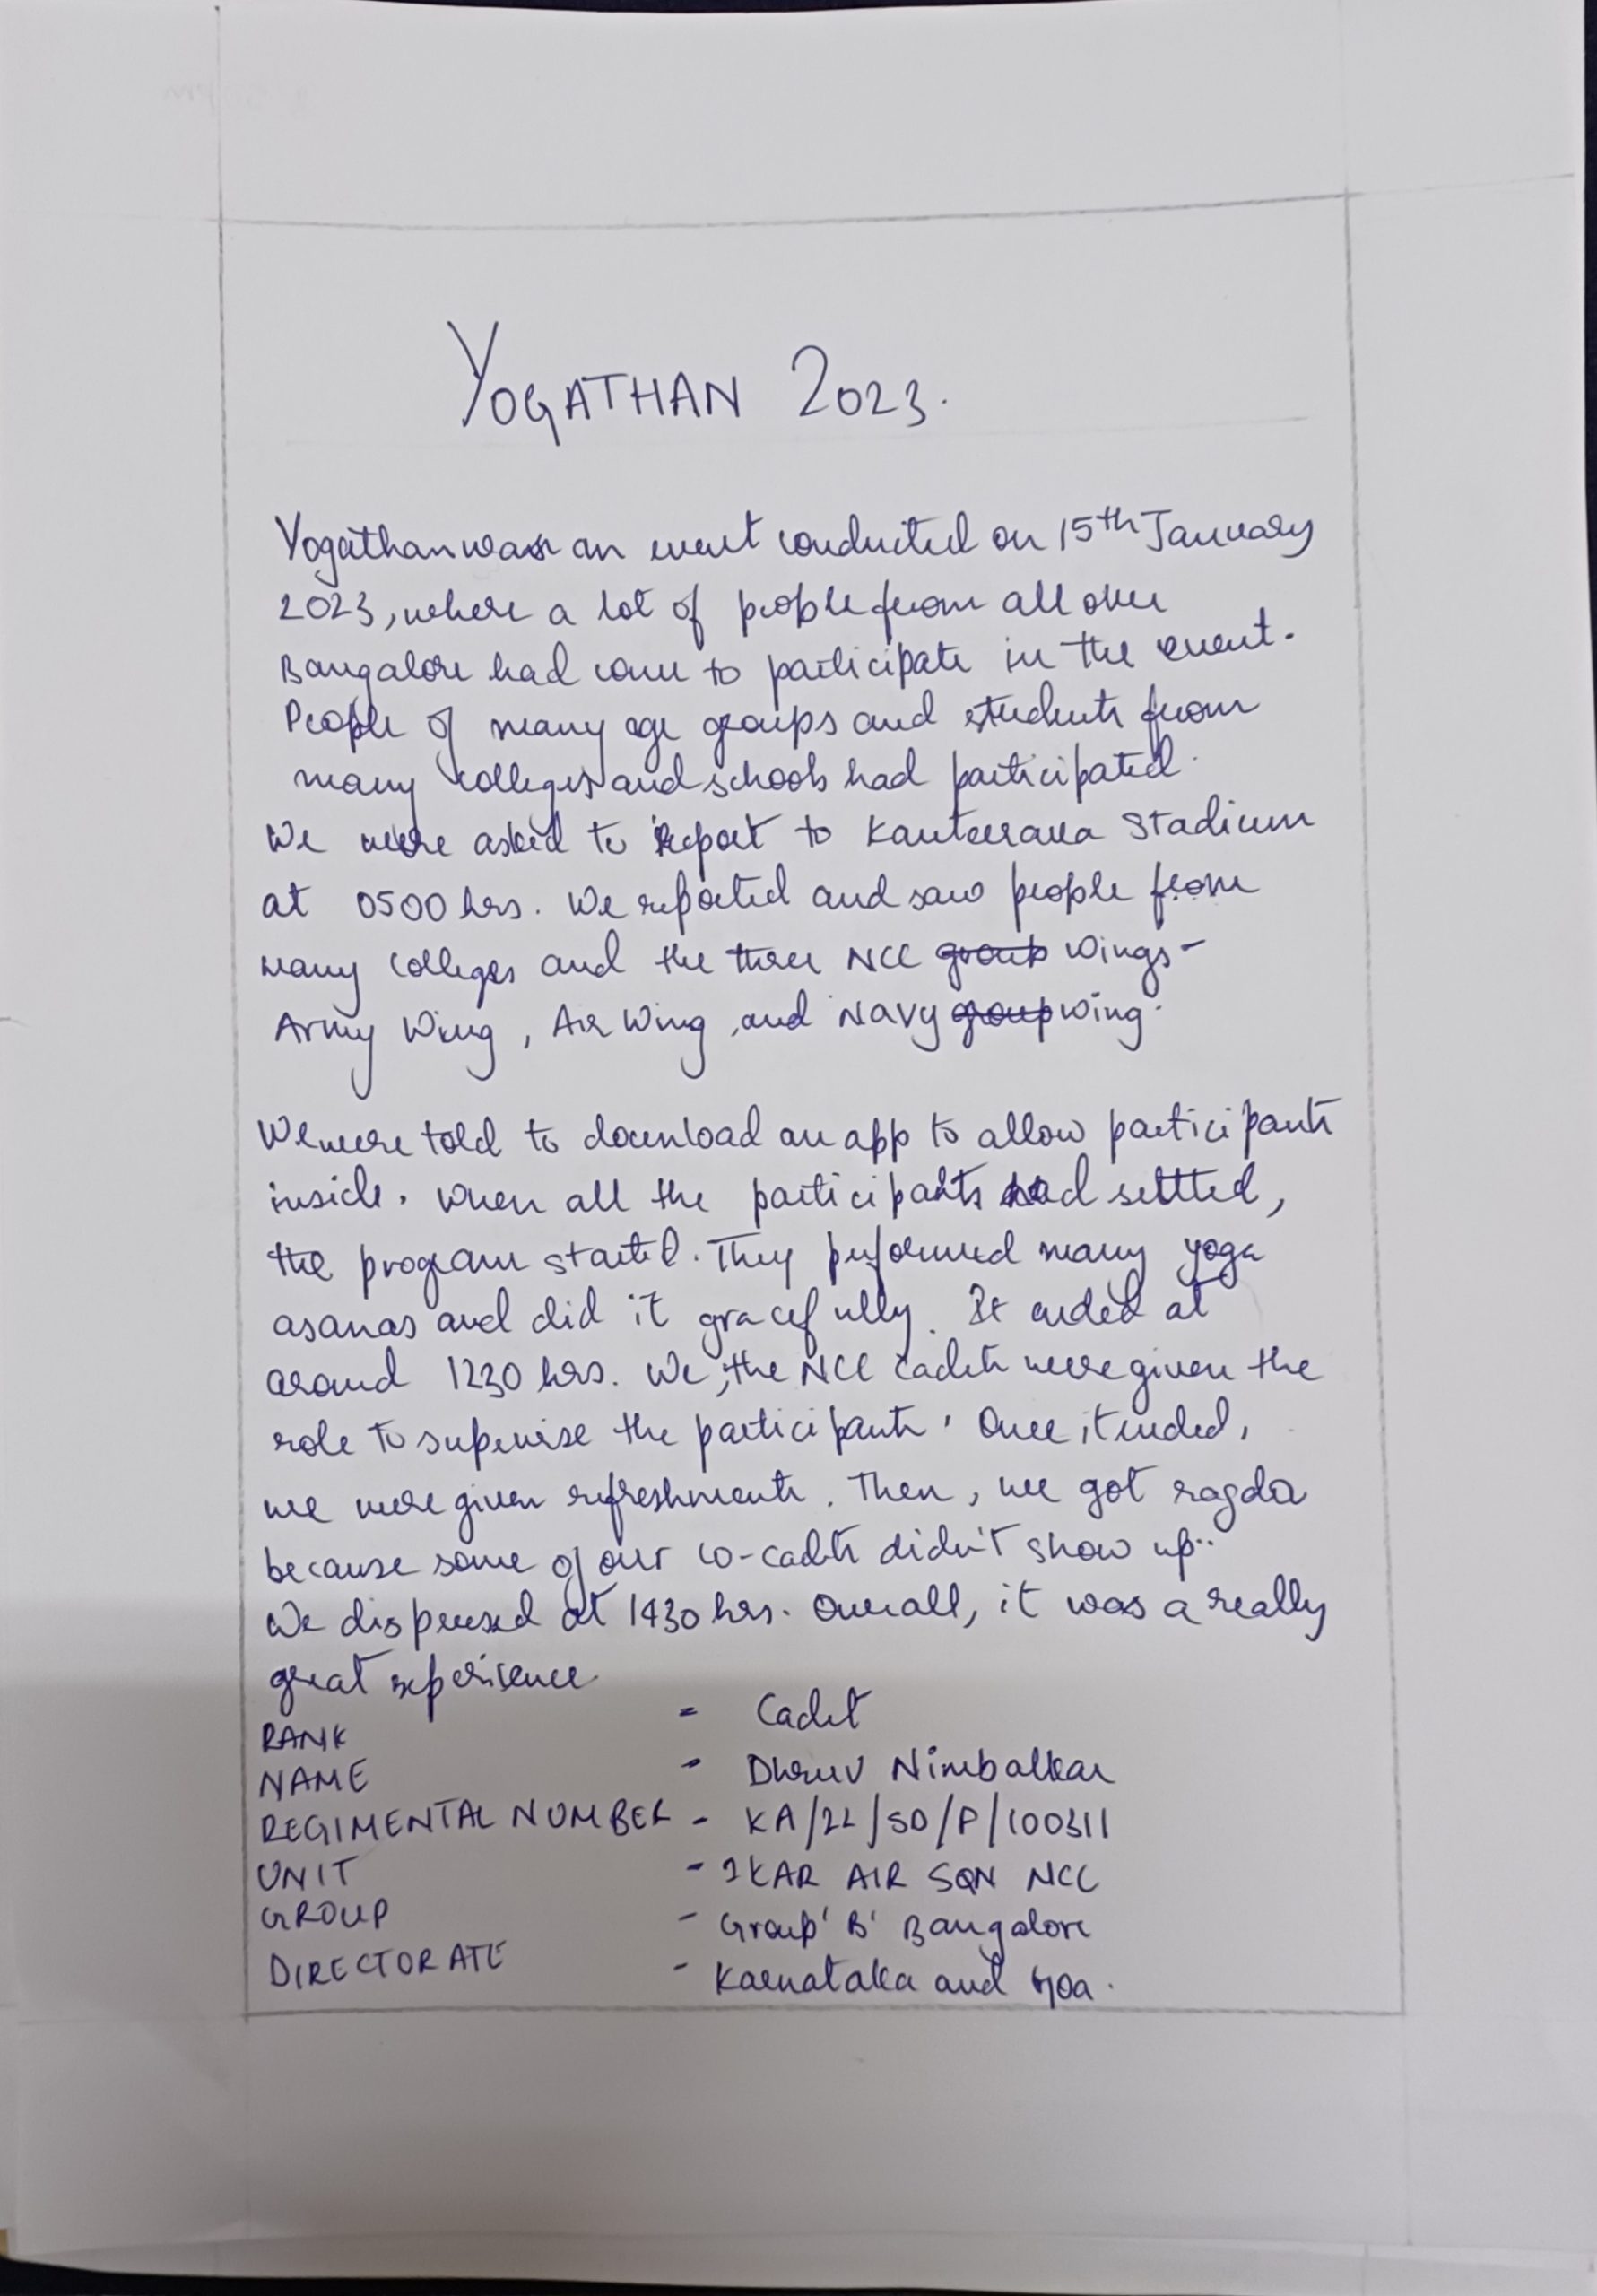 YOGATHAN 2023.
Yogathan was an event conducted on 15th January
2023, where a lot of people from all over
Bangalore had come to participate in the event.
People of many age groups and students from
many colleges and schools had participated.
We were asked to report to Kanteerava Stadium
at 0500 hrs. We reported and saw people from
many colleges and the three NCC group wings -
Army Wing, Air Wing, and Navy group wing.
We were told to download an app to allow participants
inside. When all the participants had settled,
the program started. They performed many yoga
asanas and did it gracefully. It ended at
around 1230 hrs. We, the NCC cadets were given the
role to supervise the participants. Once it ended,
we were given refreshments. Then, we got ragda
because some of our co-cadets didn't show up..
We dispersed at 1430 hrs. Overall, it was a really
great experience.
RANK - Cadet
NAME - Dhruv Nimbalkar
REGIMENTAL NUMBER - KA/22/SD/P/100311
UNIT - 1KAR AIR SQN NCC
GROUP - Group 'B' Bangalore
DIRECTORATE - Karnataka and Goa.